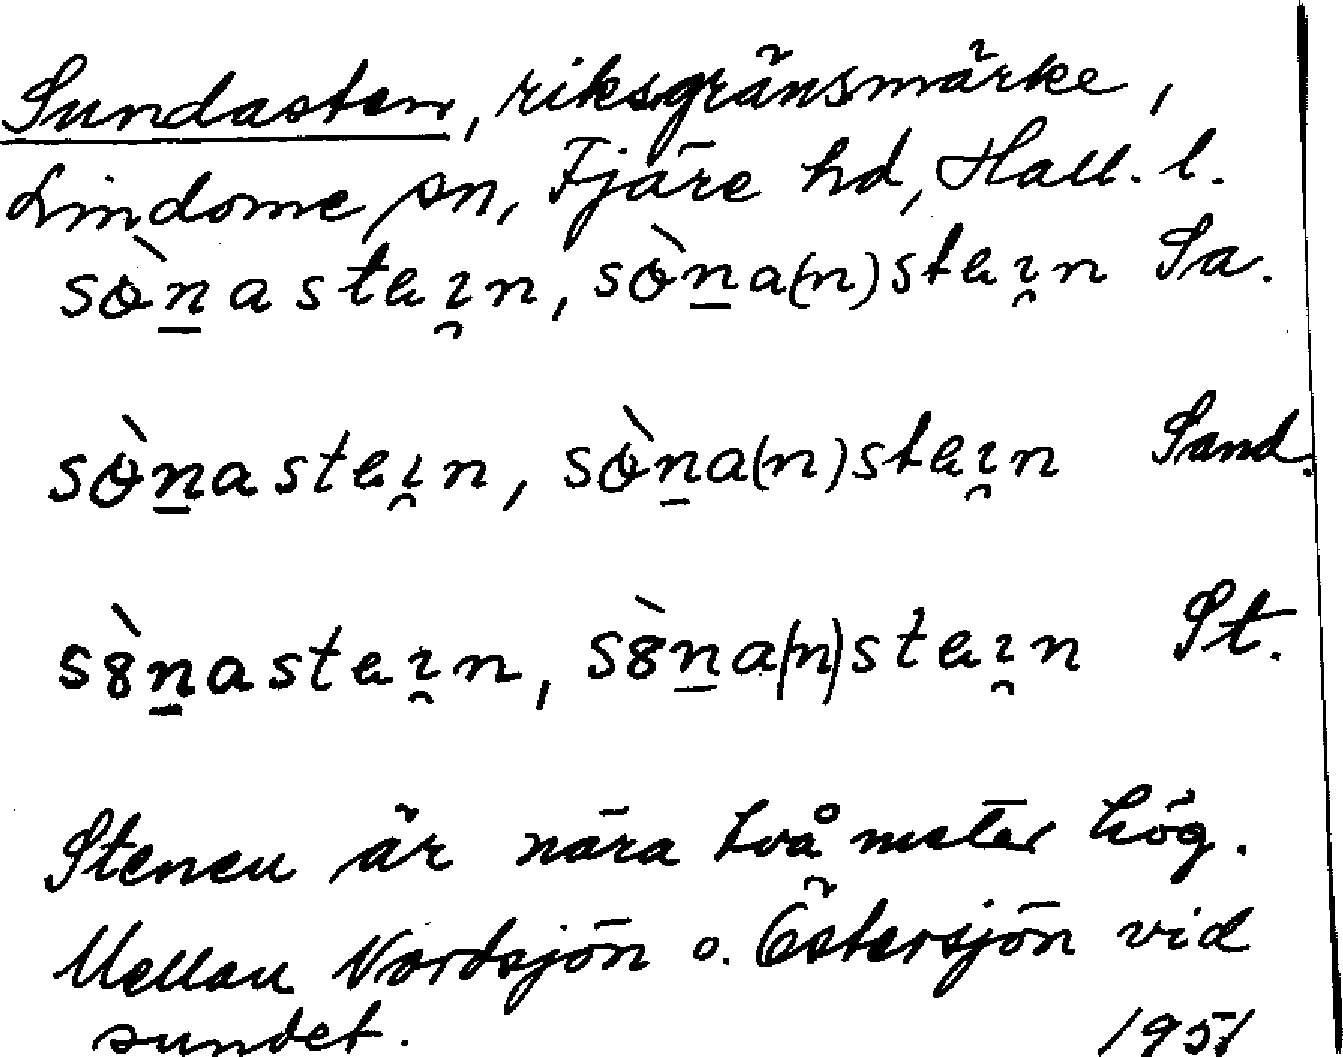 Sundasten, riksgränsmärke,
Lindome sn, Fjäre hd, Hall. l.
sɵ̀n̲astaɪ̯n, sɵ̀n̲a(n)staɪ̯n Sa.
sɵ̀n̲astaɪ̯n, sɵ̀n̲a(n)staɪ̯n Sand.
s8̀n̲astaɪ̯n, s8̀n̲a(n)staɪ̯n St.
Stenen är nära två meter hög.
Mellan Nordsjön o. Östersjön vid
sundet. 1951